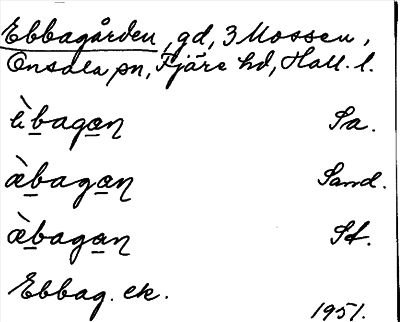 Ebbagården, gd, 3 Mossen,
Onsala sn, Fjäre hd, Hall. l.
æ̀b̲aga̲ɳ Sa.
æ̀b̲aga̲ɳ Sand.
æ̀b̲aga̲ɳ St.
Ebbag. ek.
1951.